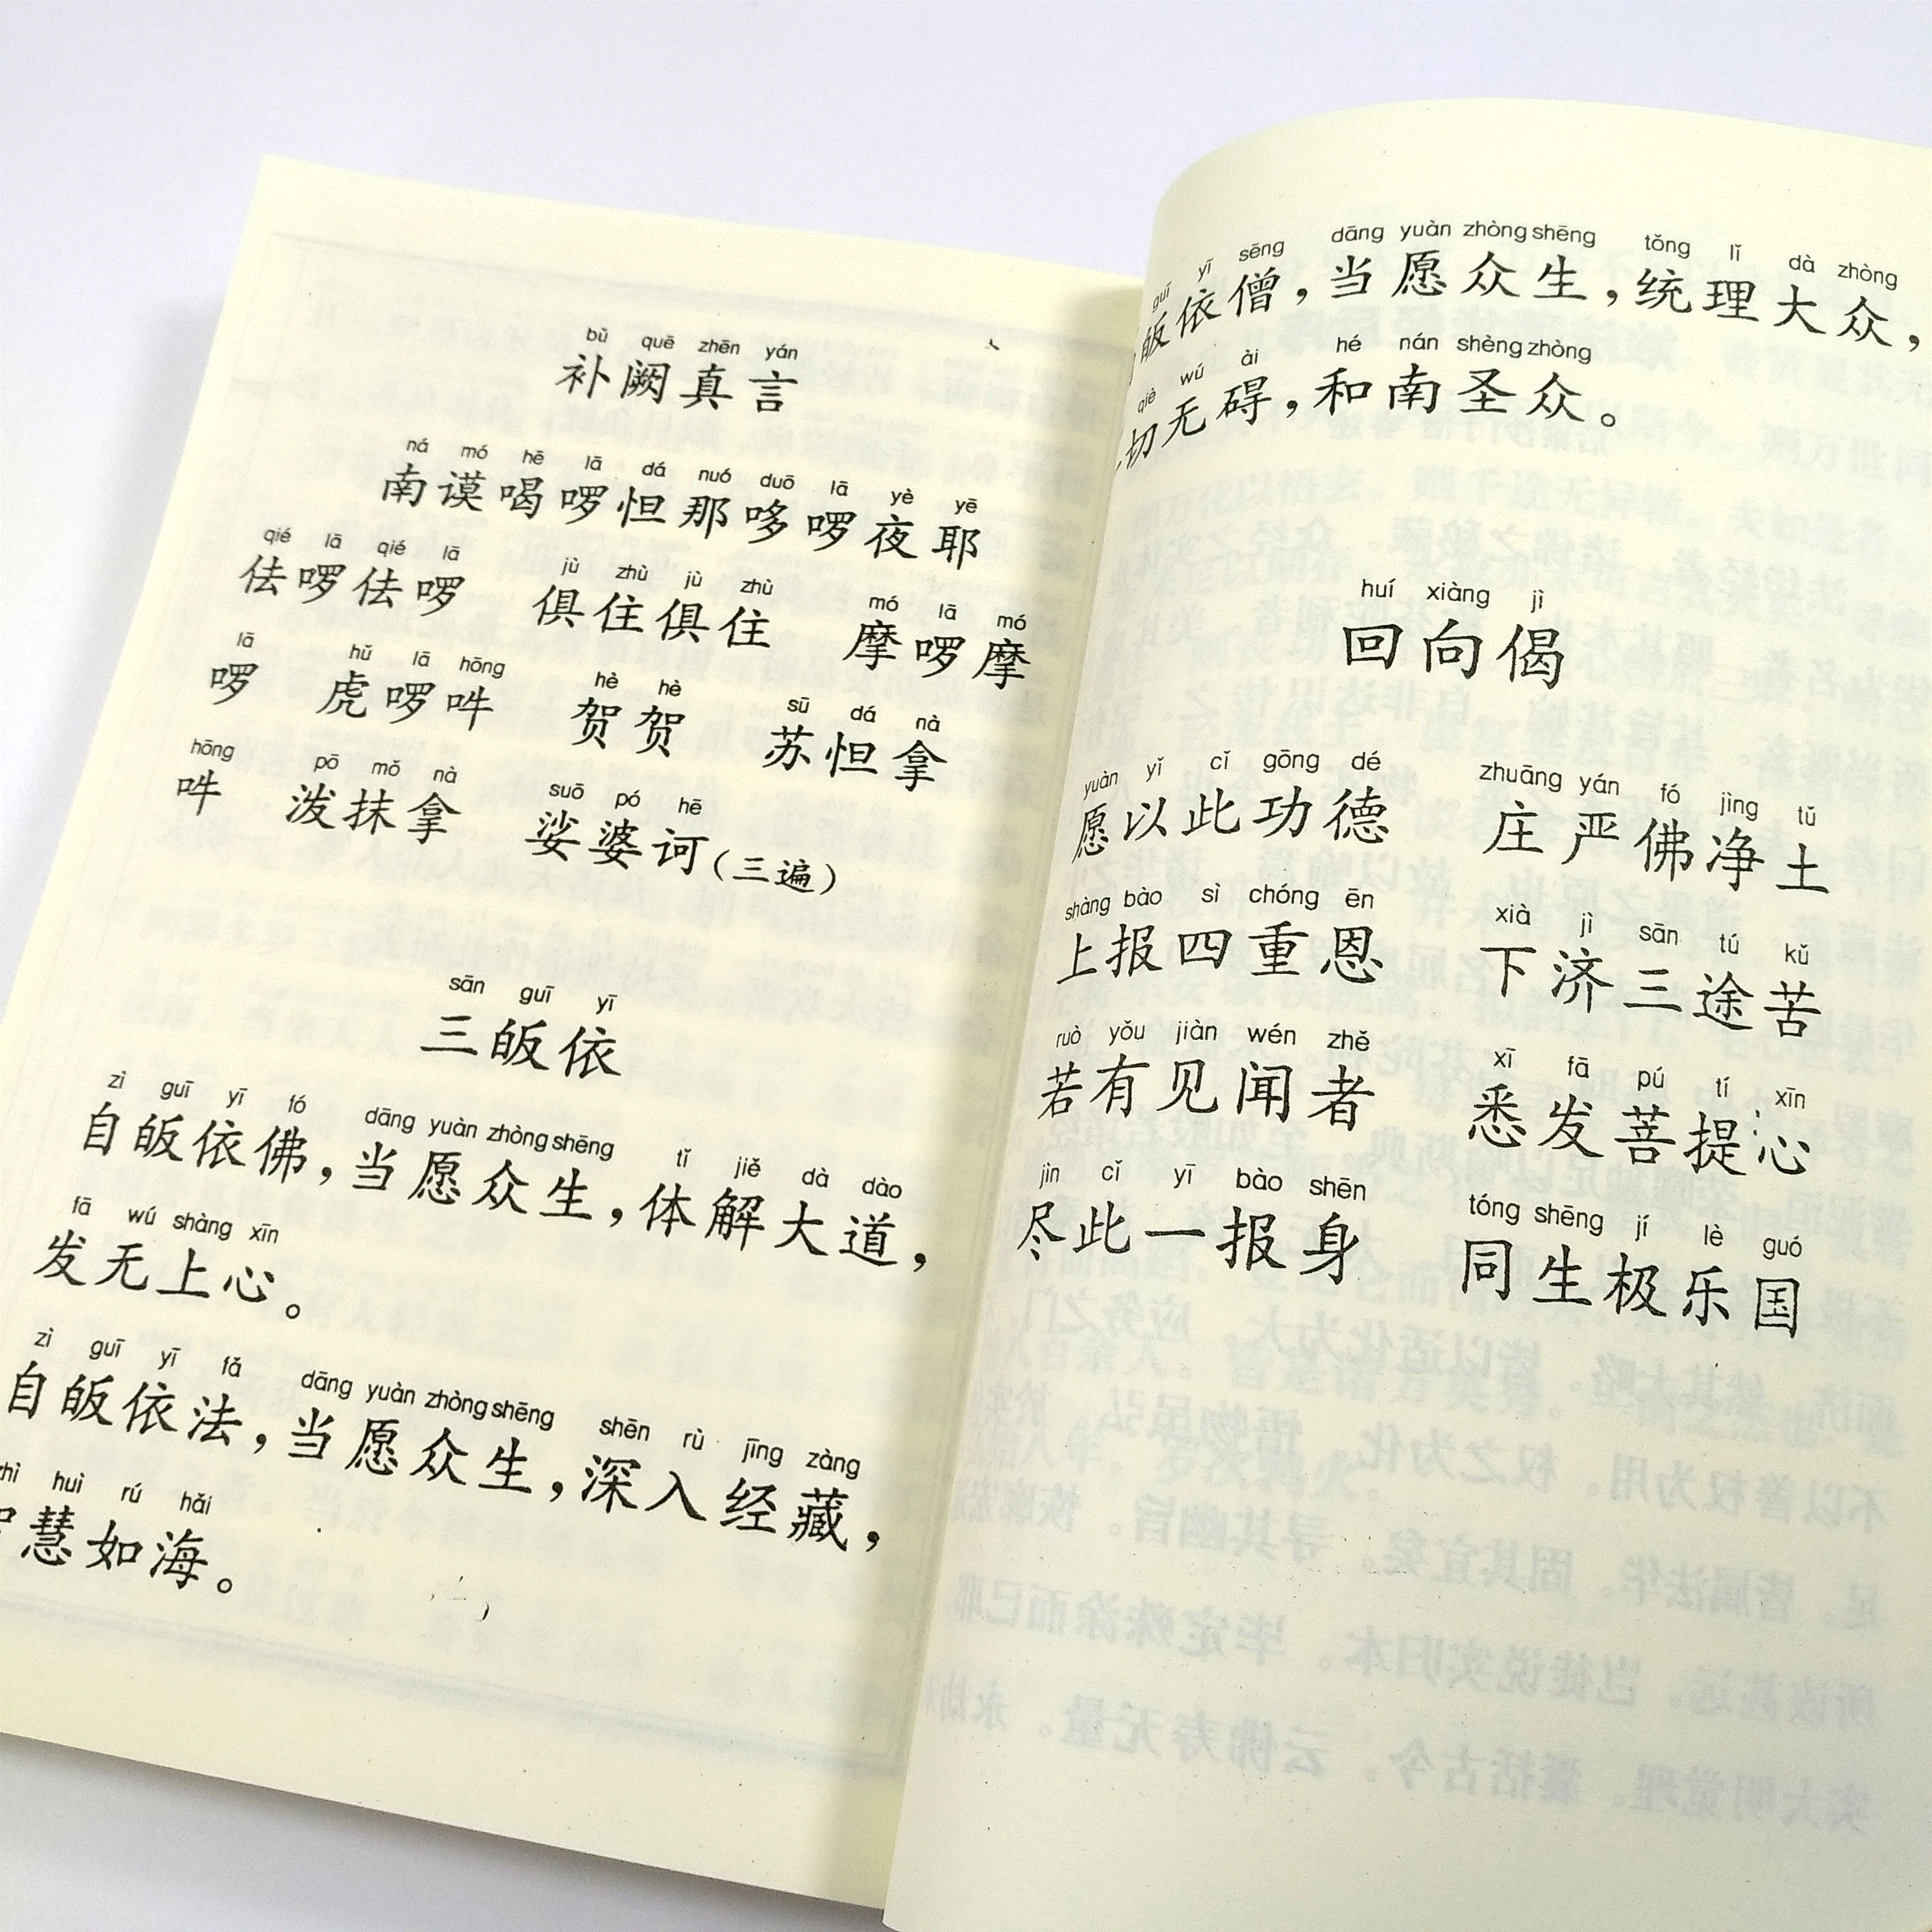 bǔ quē zhēn yán
补阙真言
ná mó hē lā dá nuó duō lā yè yē
南谟喝啰怛那哆啰夜耶
qié lā qié lā jù zhù jù zhù mó lā mó
佉啰佉啰 俱住俱住 摩啰摩
lā hǔ lā hōng hè hè sū dá nà
啰 虎啰吽 贺贺 苏怛拿
hōng pō mǒ nà suō pó hē
吽 泼抹拿 娑婆诃(三遍)
sān guī yī
三皈依
zì guī yī fó dāng yuàn zhòng shēng tǐ jiě dà dào
自皈依佛,当愿众生,体解大道,
fā wú shàng xīn
发无上心。
zì guī yī fǎ dāng yuàn zhòng shēng shēn rù jīng zàng
自皈依法,当愿众生,深入经藏,
huì rú hǎi
慧如海。
guī yī sēng dāng yuàn zhòng shēng tǒng lǐ dà zhòng
皈依僧,当愿众生,统理大众,
qiè wú ài hé nán shèng zhòng
切无碍,和南圣众。
huí xiàng jì
回向偈
yuàn yǐ cǐ gōng dé zhuāng yán fó jìng tǔ
愿以此功德 庄严佛净土
shàng bào sì chóng ēn xià jì sān tú kǔ
上报四重恩 下济三途苦
ruò yǒu jiàn wén zhě xī fā pú tí xīn
若有见闻者 悉发菩提心
jìn cǐ yī bào shēn tóng shēng jí lè guó
尽此一报身 同生极乐国